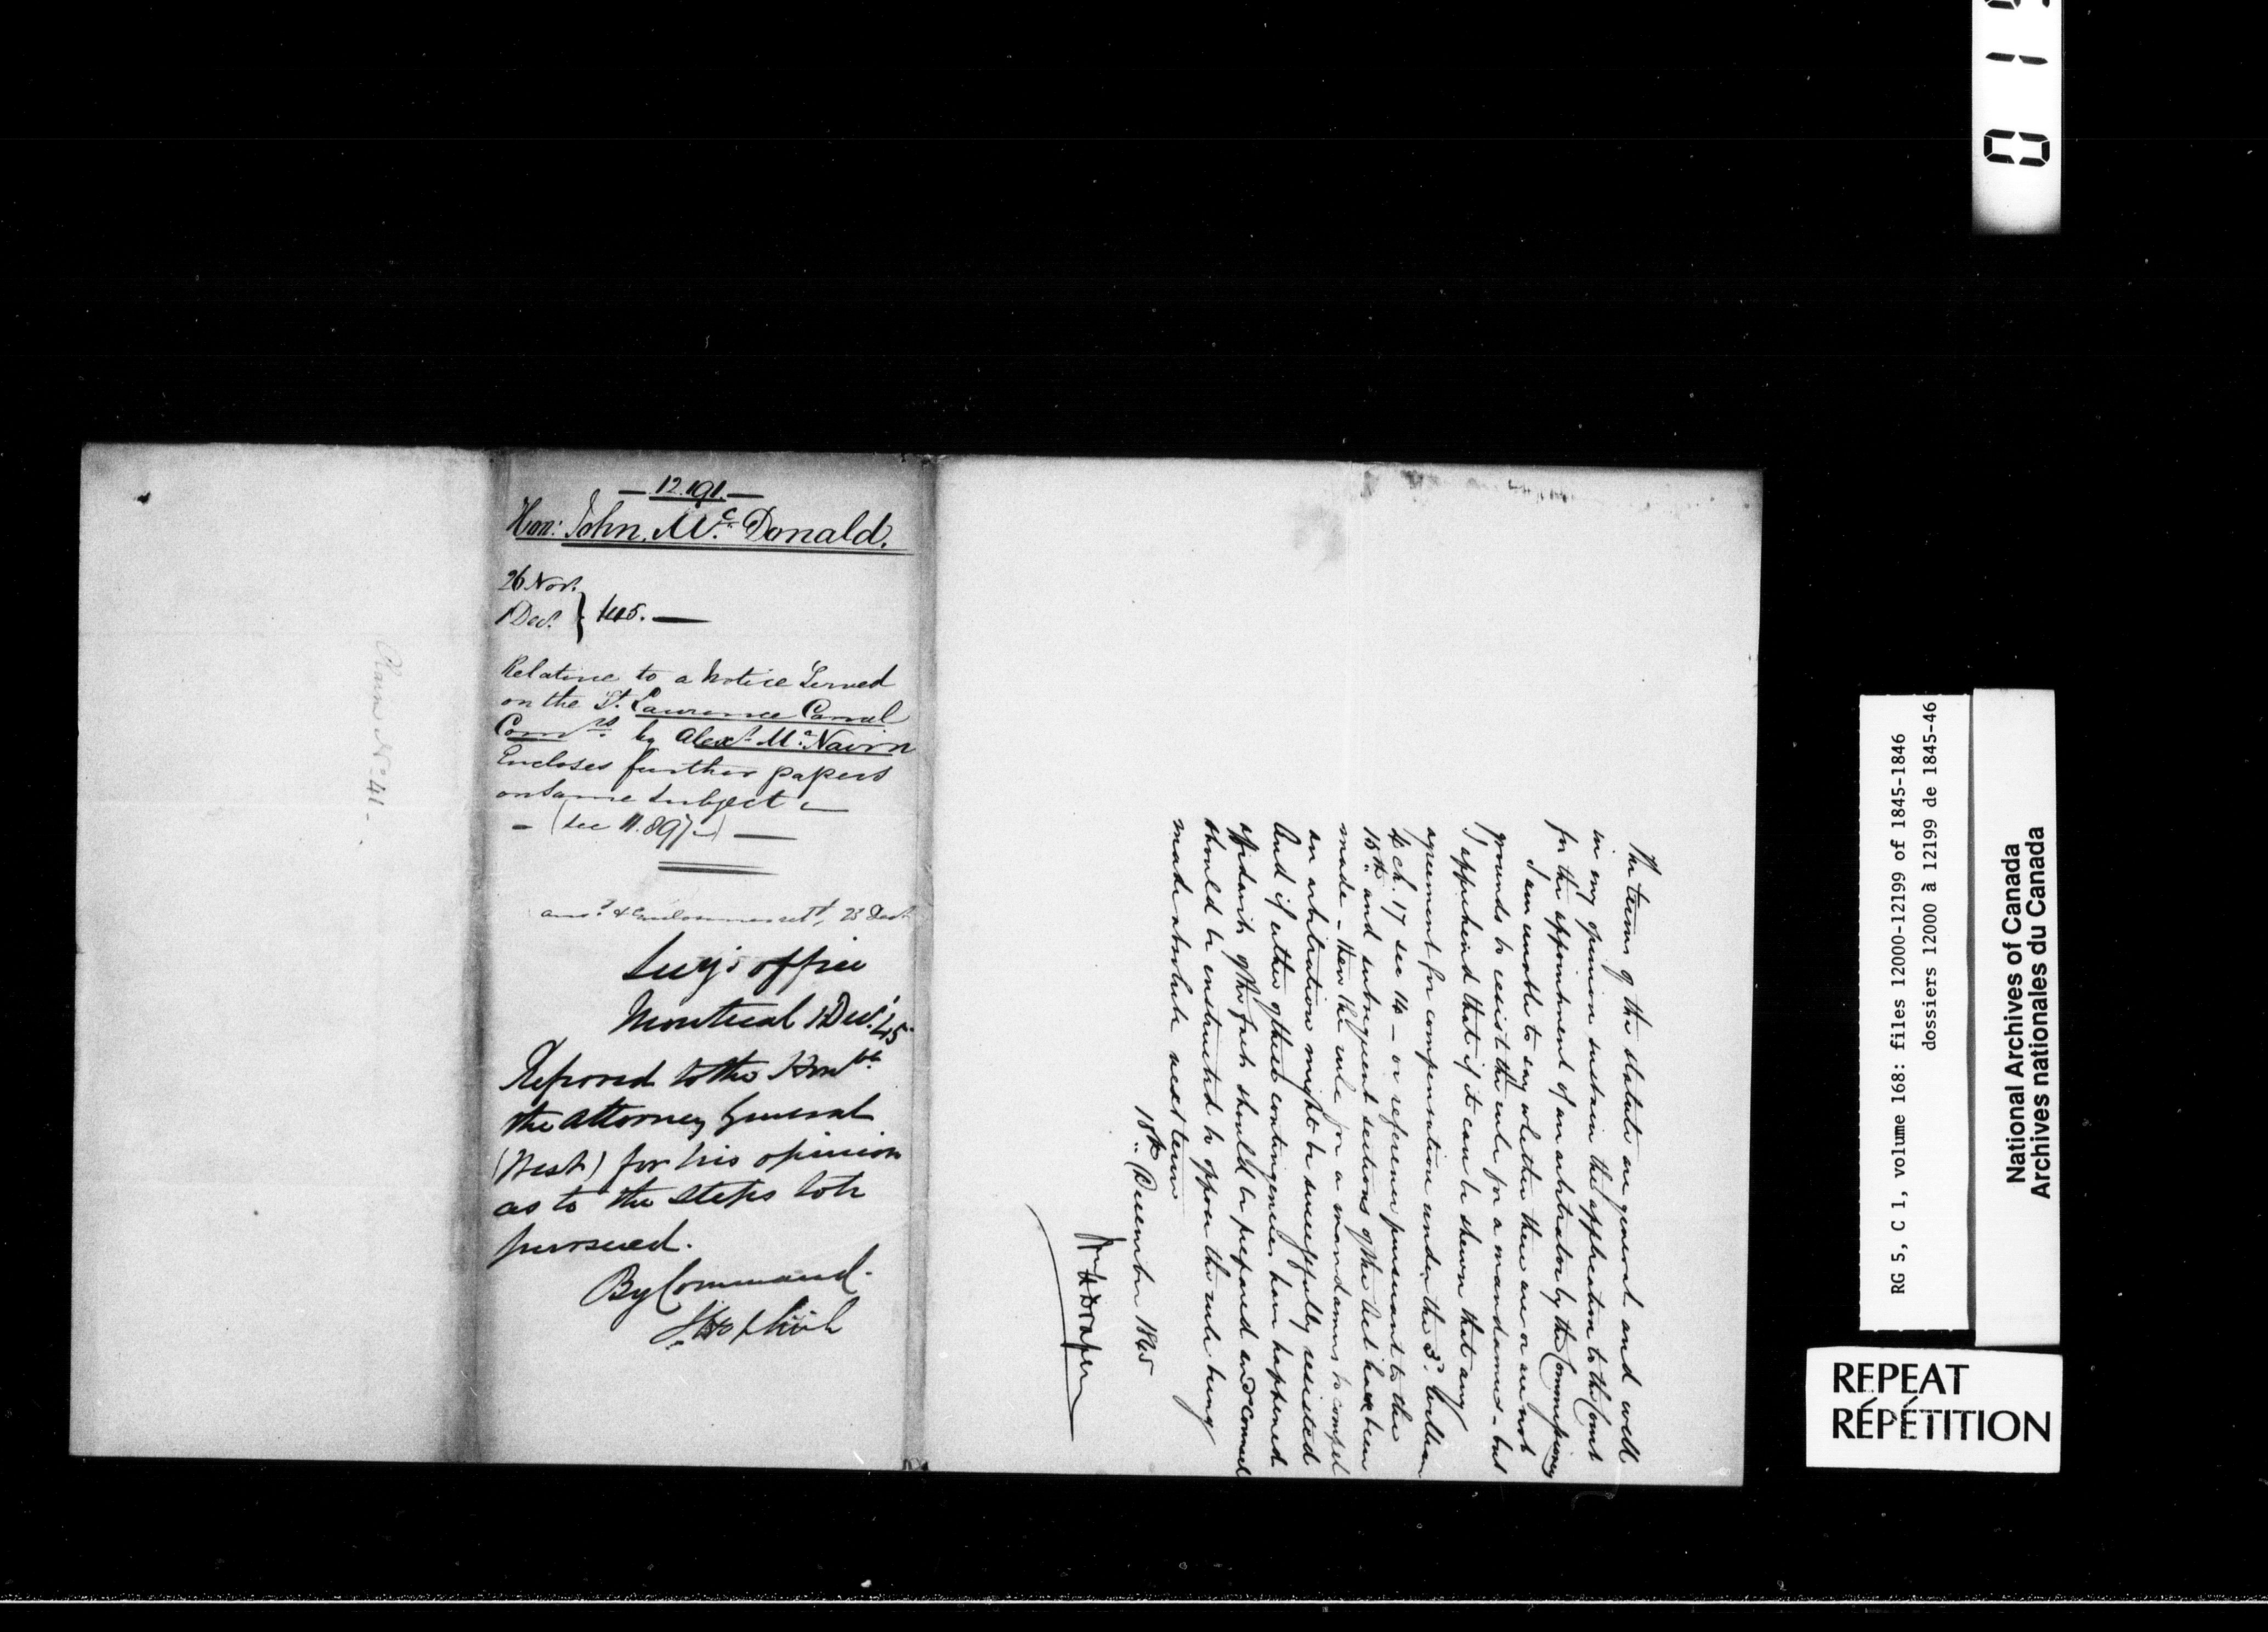 — 12.191. —
Hon: John. Mc. Donald.
26 Novr.
1 Decr. } 1845. —
Relative to a Notice Served
on the St. Lawrence Canal
Comrs. by Alexr. Mc.Nairn
Encloses further papers
on Same Subject —
— (See 11.897—) —
ansd. & Enclosures retd., 23 Decr.
Secy's office
Montreal 1 Decr. '45
Referred to the Honble.
the Attorney General
(West) for his opinion
as to the steps to be
pursued.
By Command.
Claim No. 41.
The terms of the statute are general and will
in my opinion sustain the application to the Court
for the appointment of an arbitrator by the Commissioners
I am unable to say whether there are or are not
grounds to resist the rule for a mandamus - but
I apprehend that if it can be shewn that any
agreement for compensation under the 3d. William
4 ch. 17 sec 14 — or reference pursuant to the
15th. and subsequent sections of the Act have been
made - then the rule for a mandamus to compel
an arbitration might be successfully resisted
And if either of these contingencies have happened
affidavits of the facts should be prepared and counsel
should be instructed to oppose the rule being
made absolute next term
18th. December 1845
Wm H Draper
0 1 9
RG 5, C 1, volume 168: files 12000-12199 of 1845-1846
dossiers 12000 à 12199 de 1845-46
National Archives of Canada
Archives nationales du Canada
REPEAT
RÉPÉTITION